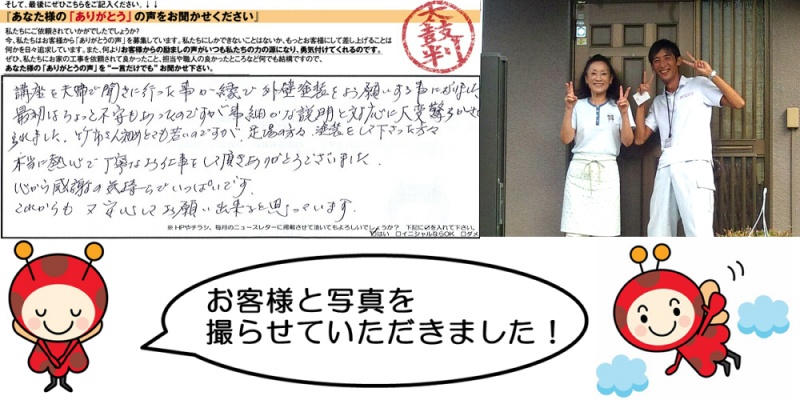 そして、最後にぜひこちらをご記入ください。↓↓
『あなた様の「ありがとう」の声をお聞かせください』
私たちにご依頼されていかがでしたでしょうか?
今、私たちはお客様から「ありがとうの声」を募集しています。私たちにしかできないことはないか、もっとお客様にして差し上げることは
何かを日々追求しています。また、何よりお客様からの励ましの声がいつも私たちの力の源になり、勇気付けてくれるのです。
ぜひ、私たちにお家の工事を依頼されて良かったこと、担当や職人の良かったところなど何でも結構ですので、
あなた様の「ありがとうの声」を"一言だけでも"お聞かせ下さい。
太鼓判
講座を夫婦で聞きに行った事が縁で外壁塗装をお願いする事になりました
最初はちょっと不安もあったのですが事細かな説明と対応に大変驚ろかせ
られました。
本当に熱心で丁寧なお仕事をして頂きありがとうございました。
心から感謝の気持ちでいっぱいです。
これからも又安心してお願い出来ると思っています。
※HPやチラシ、毎月のニュースレターに掲載させて頂いてもよろしいでしょうか? 下記に☑を入れて下さい。
はい □イニシャルならOK □ダメ
お客様と写真を
撮らせていただきました!